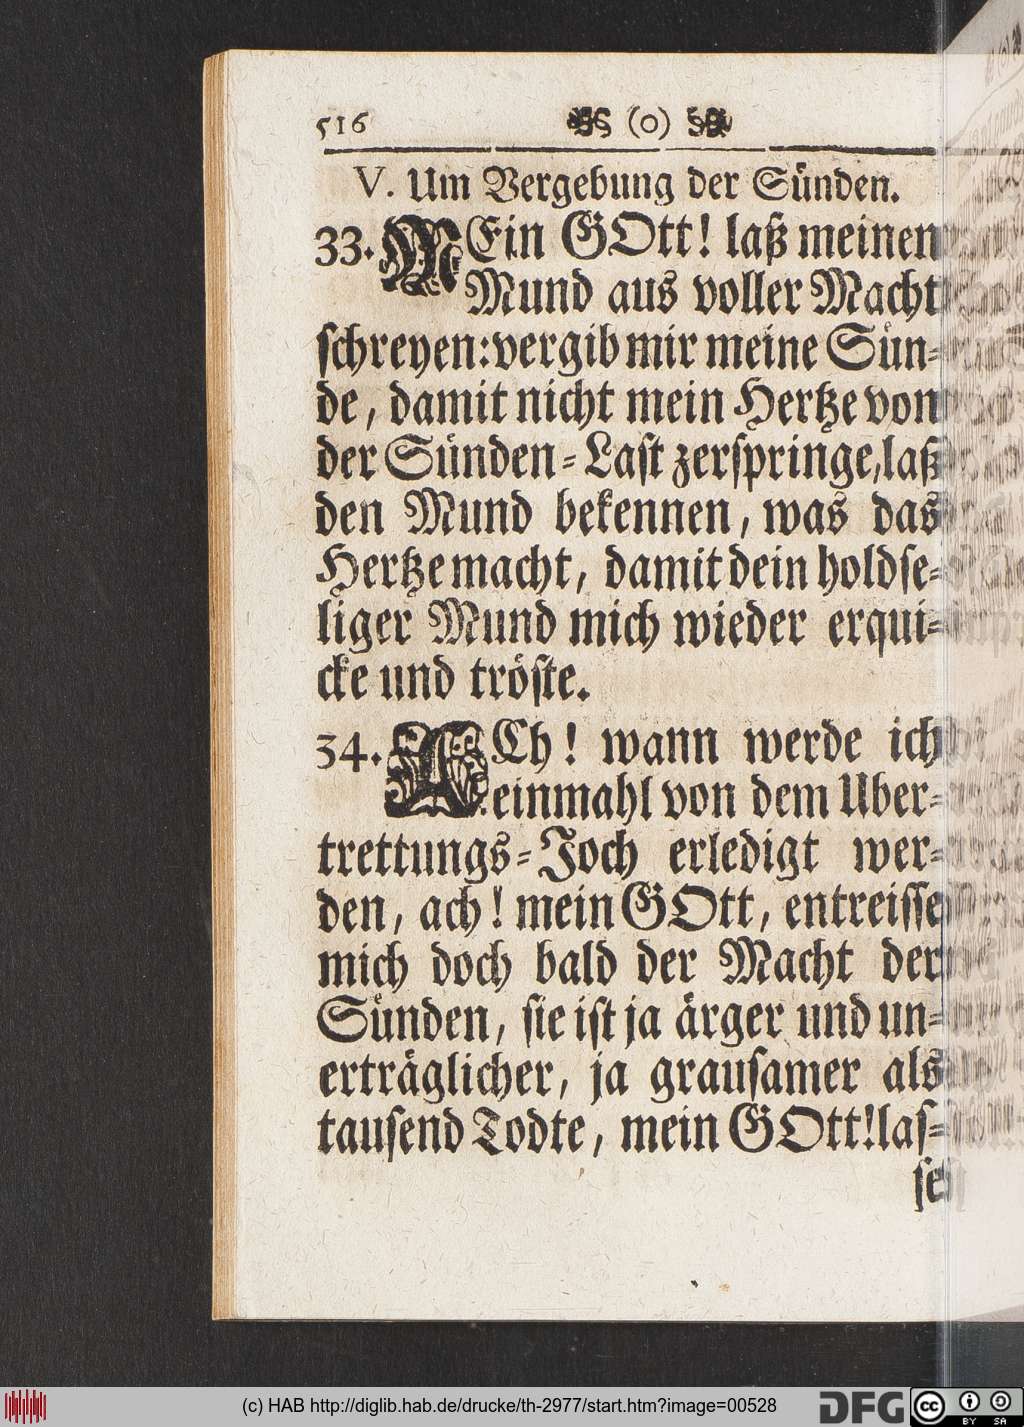 516 (o)
V. Um Vergebung der Sünden.
33. MEin GOtt! laß meinen
Mund aus voller Macht
schreyen: vergib mir meine Sün-
de, damit nicht mein Hertze von
der Sünden-Last zerspringe, laß
den Mund bekennen, was das
Hertze macht, damit dein holdse-
liger Mund mich wieder erqui-
cke und tröste.
34. ACh! wann werde ich
einmahl von dem Uber-
trettungs-Joch erledigt wer-
den, ach! mein GOtt, entreisse
mich doch bald der Macht der
Sünden, sie ist ja ärger und un-
erträglicher, ja grausamer als
tausend Todte, mein GOtt! las-
se
(c) HAB http://diglib.hab.de/drucke/th-2977/start.htm?image=00528
DFG
cc BY SA